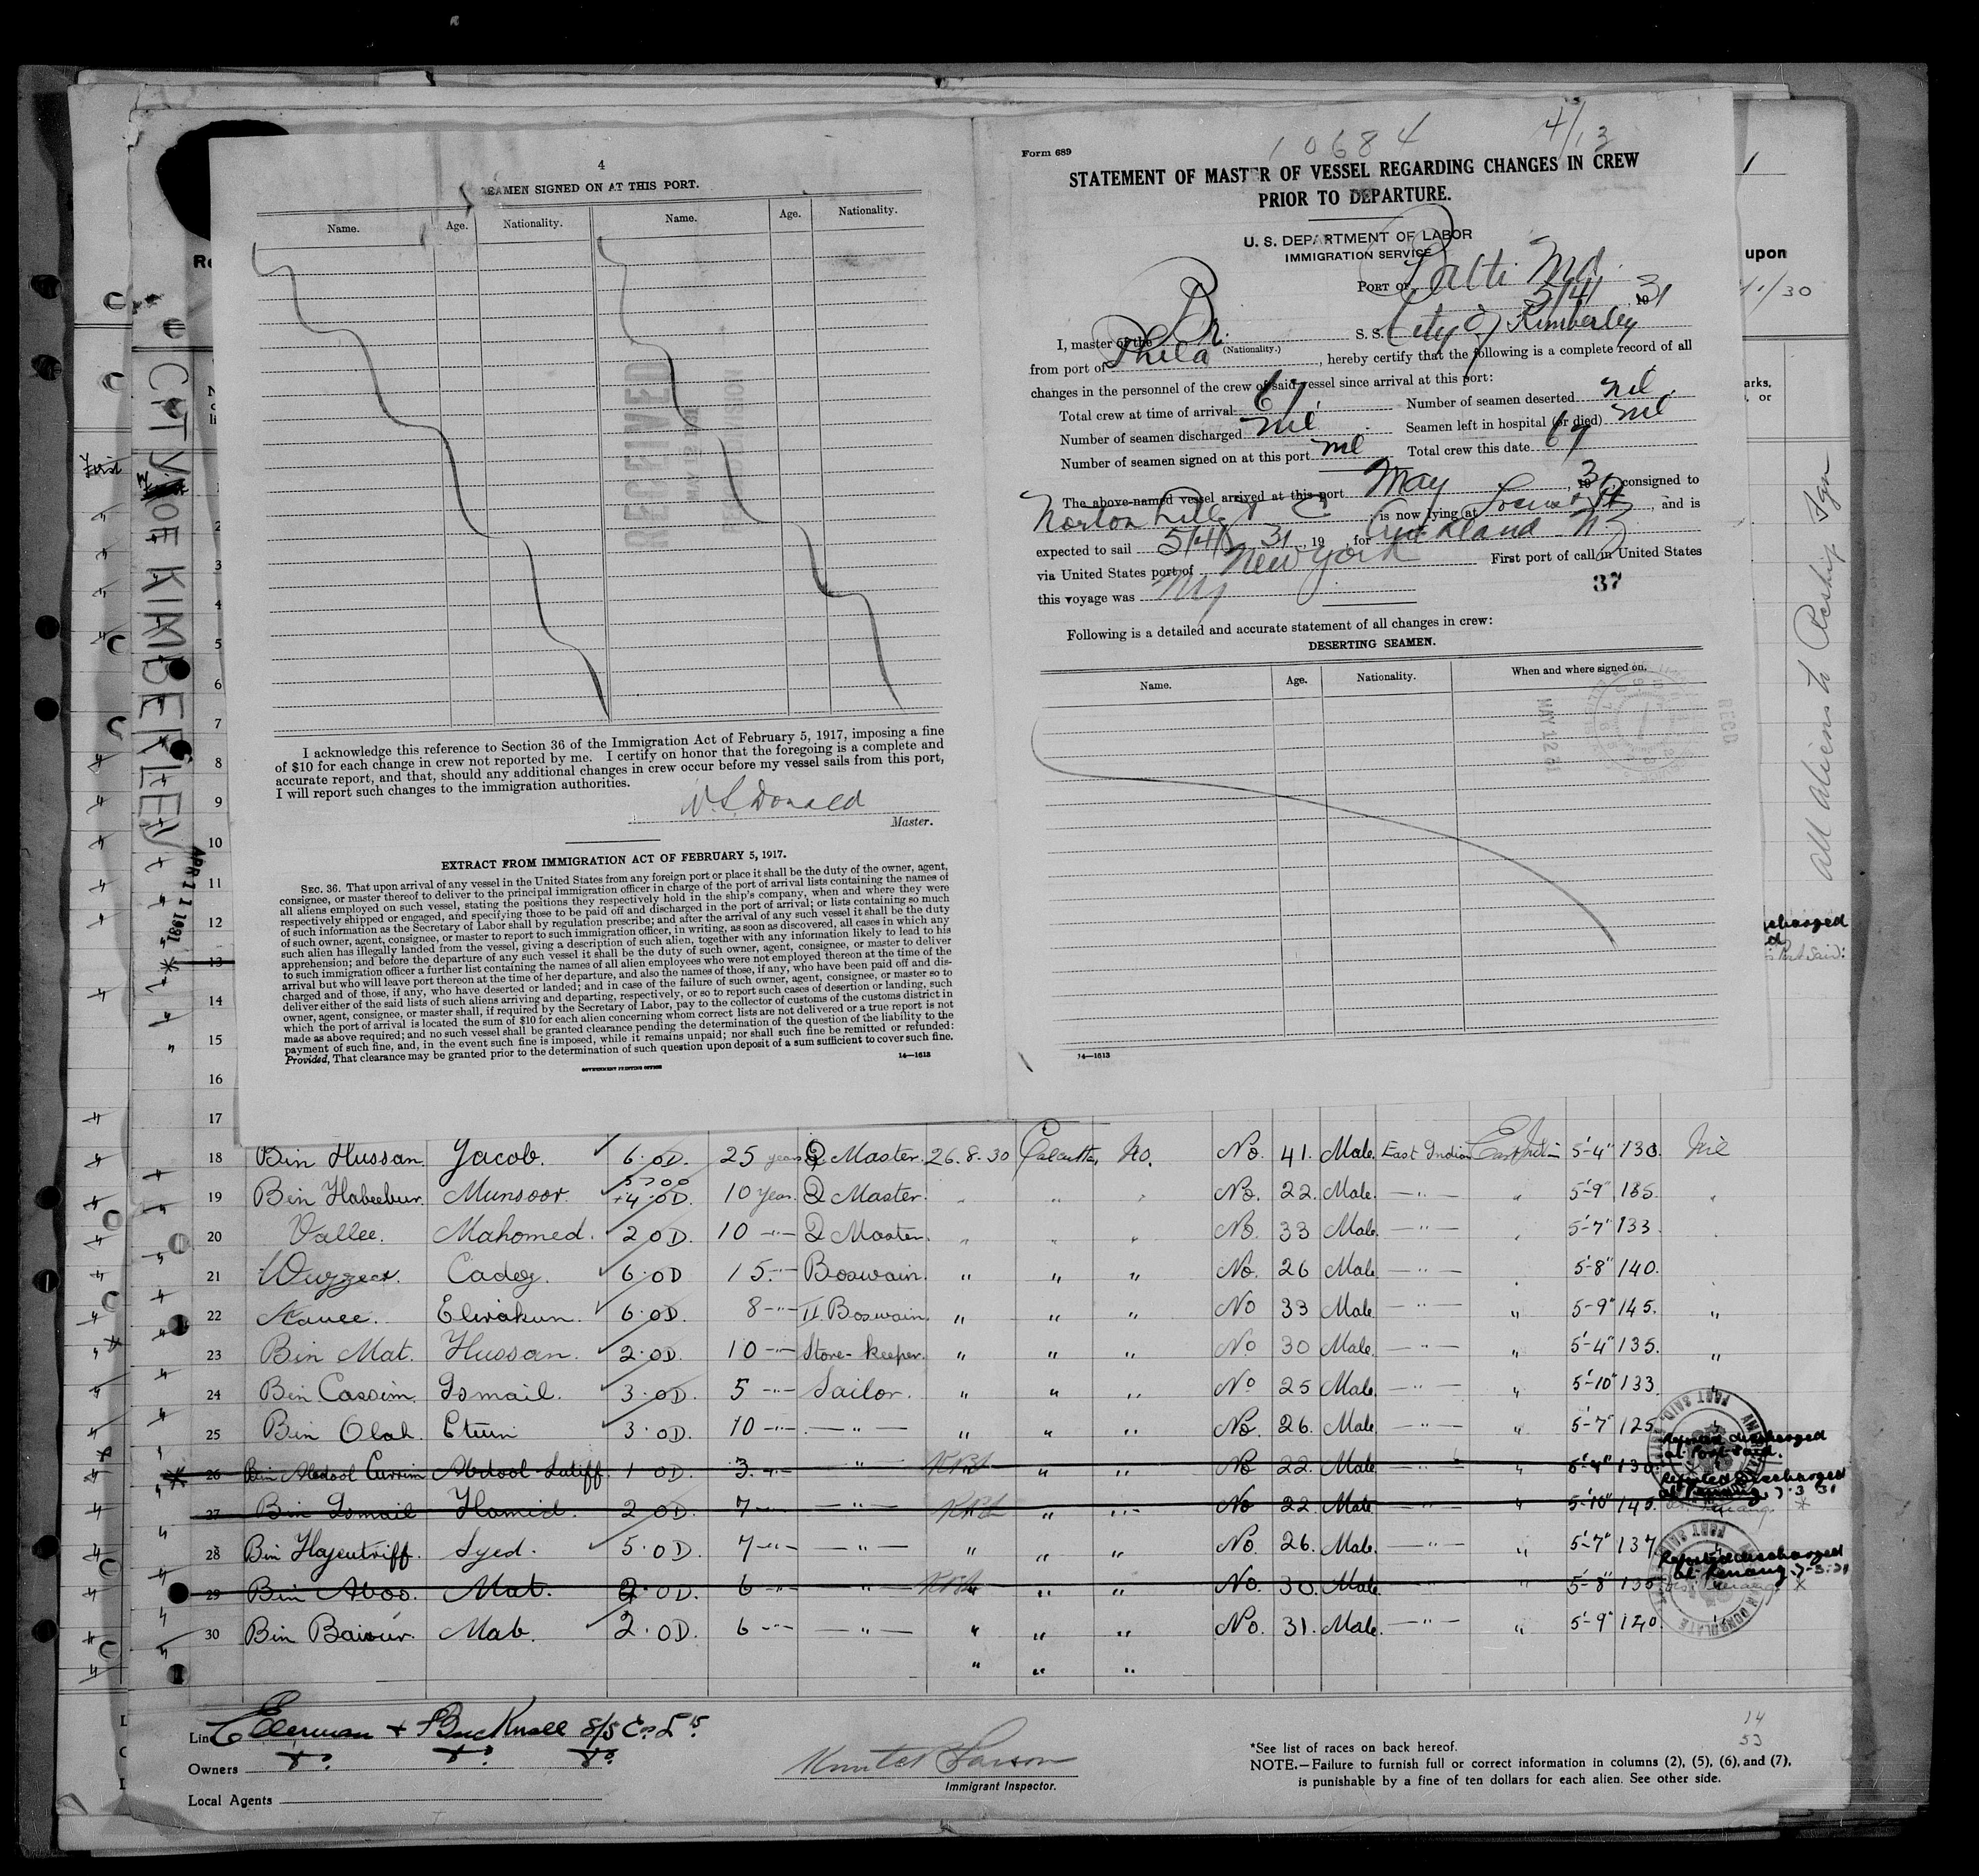 4
SEAMEN SIGNED ON AT THIS PORT.
Name. Age. Nationality. Name. Age. Nationality.
I acknowledge this reference to Section 36 of the Immigration Act of February 5, 1917, imposing a fine
of $10 for each change in crew not reported by me. I certify on honor that the foregoing is a complete and
accurate report, and that, should any additional changes in crew occur before my vessel sails from this port,
I will report such changes to the immigration authorities.
Donald
Master.
EXTRACT FROM IMMIGRATION ACT OF FEBRUARY 5, 1917.
SEC. 36. That upon arrival of any vessel in the United States from any foreign port or place it shall be the duty of the owner, agent,
consignee, or master thereof to deliver to the principal immigration officer in charge of the port of arrival lists containing the names of
all aliens employed on such vessel, stating the positions they respectively hold in the ship's company, when and where they were
respectively shipped or engaged, and specifying those to be paid off and discharged in the port of arrival; or lists containing so much
of such information as the Secretary of Labor shall by regulation prescribe; and after the arrival of any such vessel it shall be the duty
of such owner, agent, consignee, or master to report to such immigration officer, in writing, as soon as discovered, all cases in which any
such alien has illegally landed from the vessel, giving a description of such alien, together with any information likely to lead to his
apprehension; and before the departure of any such vessel it shall be the duty of such owner, agent, consignee, or master to deliver
to such immigration officer a further list containing the names of all alien employees who were not employed thereon at the time of the
arrival but who will leave port thereon at the time of her departure, and also the names of those, if any, who have been paid off and dis-
charged and of those, if any, who have deserted or landed; and in case of the failure of such owner, agent, consignee, or master so to
deliver either of the said lists of such aliens arriving and departing, respectively, or so to report such cases of desertion or landing, such
owner, agent, consignee, or master shall, if required by the Secretary of Labor, pay to the collector of customs of the customs district in
which the port of arrival is located the sum of $10 for each alien concerning whom correct lists are not delivered or a true report is not
made as above required; and no such vessel shall be granted clearance pending the determination of the question of the liability to the
payment of such fine, and, in the event such fine is imposed, while it remains unpaid; nor shall such fine be remitted or refunded:
Provided, That clearance may be granted prior to the determination of such question upon deposit of a sum sufficient to cover such fine.
14—1613
GOVERNMENT PRINTING OFFICE
RECEIVED
10684 4/13
Form 689
STATEMENT OF MASTER OF VESSEL REGARDING CHANGES IN CREW
PRIOR TO DEPARTURE.
U. S. DEPARTMENT OF LABOR
IMMIGRATION SERVICE
PORT OF Balti Md.
5/4/ 1931
I, master of the Br. S. S. City of Kimberley
(Nationality.)
from port of Phila, hereby certify that the following is a complete record of all
changes in the personnel of the crew of said vessel since arrival at this port:
Total crew at time of arrival 67 Number of seamen deserted nil.
Number of seamen discharged nil Seamen left in hospital (or died) nil
Number of seamen signed on at this port nil Total crew this date 67
The above-named vessel arrived at this port May, 1931, consigned to
Norton Lilly & Co is now lying at Locust Pt, and is
expected to sail 5/4/ 31, 19, for Auckland NZ
via United States port of New York First port of call in United States
this voyage was NY
37
Following is a detailed and accurate statement of all changes in crew:
DESERTING SEAMEN.
Name. Age. Nationality. When and where signed on.
MAY 12 31
REC'D
14—1613
upon
CITY OF KIMBERLEY
APR 11 1931
All Aliens to Reship
1
2
3
4
5
6
7
8
9
10
11
12
13
14
15
16
17
18 Bin Hussan. Yacob. 6.0D. 25 years Q Master. 26.8.30 Calcutta, No. No. 41. Male. East Indian East Indian 5'-4" 130. Nil
19 Bin Habeebur. Munsoor. 4.0D. 10 years Q Master. " " " No. 22. Male. — " — " 5'-9" 135. "
20 Vallee. Mahomed. 2 0D. 10 — " — Q Master. " " " No. 33 Male. — " — " 5'-7" 133.
21 Cadey. 6.0D 15. — " — Boswain. " " " No. 26 Male. — " — 5'-8" 140.
22 6.0D. 8 — " — II Boswain. " " " No 33 Male. — " — " 5'-9" 145. "
23 Bin Mat. Hussan. 2.0D. 10 — " — Store-keeper. " " " No 30 Male. — " — " 5'-4" 135. "
24 Bin Cassim. Ismail. 3.0D. 5 — " — Sailor. " " " No 25 Male. — " — " 5'-10" 133.
25 Bin Olah. 3.0D. 10 — " — — " — " " " No. 26. Male — " — " 5'-7" 125.
26 Bin Abdool Currim Abdool Lutiff. 1 0D. 3. — " — — " — " " No 22. Male — " — " 130. Reported discharged at Port Said.
27 Bin Ismail Hamid. 2 0D. 7 — " — — " — " " No 22 Male — " — " 5'-10" 145. Reported discharged at Penang. 7-3-31
28 Bin Syed. 5.0D. 7 — " — — " — " " " No. 26. Male. — " — " 5'-7" 137
29 Bin Aboo. Mat. 2.0D. 6 — " — — " — " " No. 30. Male. — " — " 5'-8" 135 Reported discharged at Penang 7-3-31
30 Bin Mat. 2.0D. 6 — " — — " — " " " No. 31. Male. — " — " 5'-9" 140.
" " "
Line Ellerman & Bucknall S/S Co Ld
Owners Do. Do. Do.
Local Agents
Larson
Immigrant Inspector.
14
53
*See list of races on back hereof.
NOTE.—Failure to furnish full or correct information in columns (2), (5), (6), and (7),
is punishable by a fine of ten dollars for each alien. See other side.